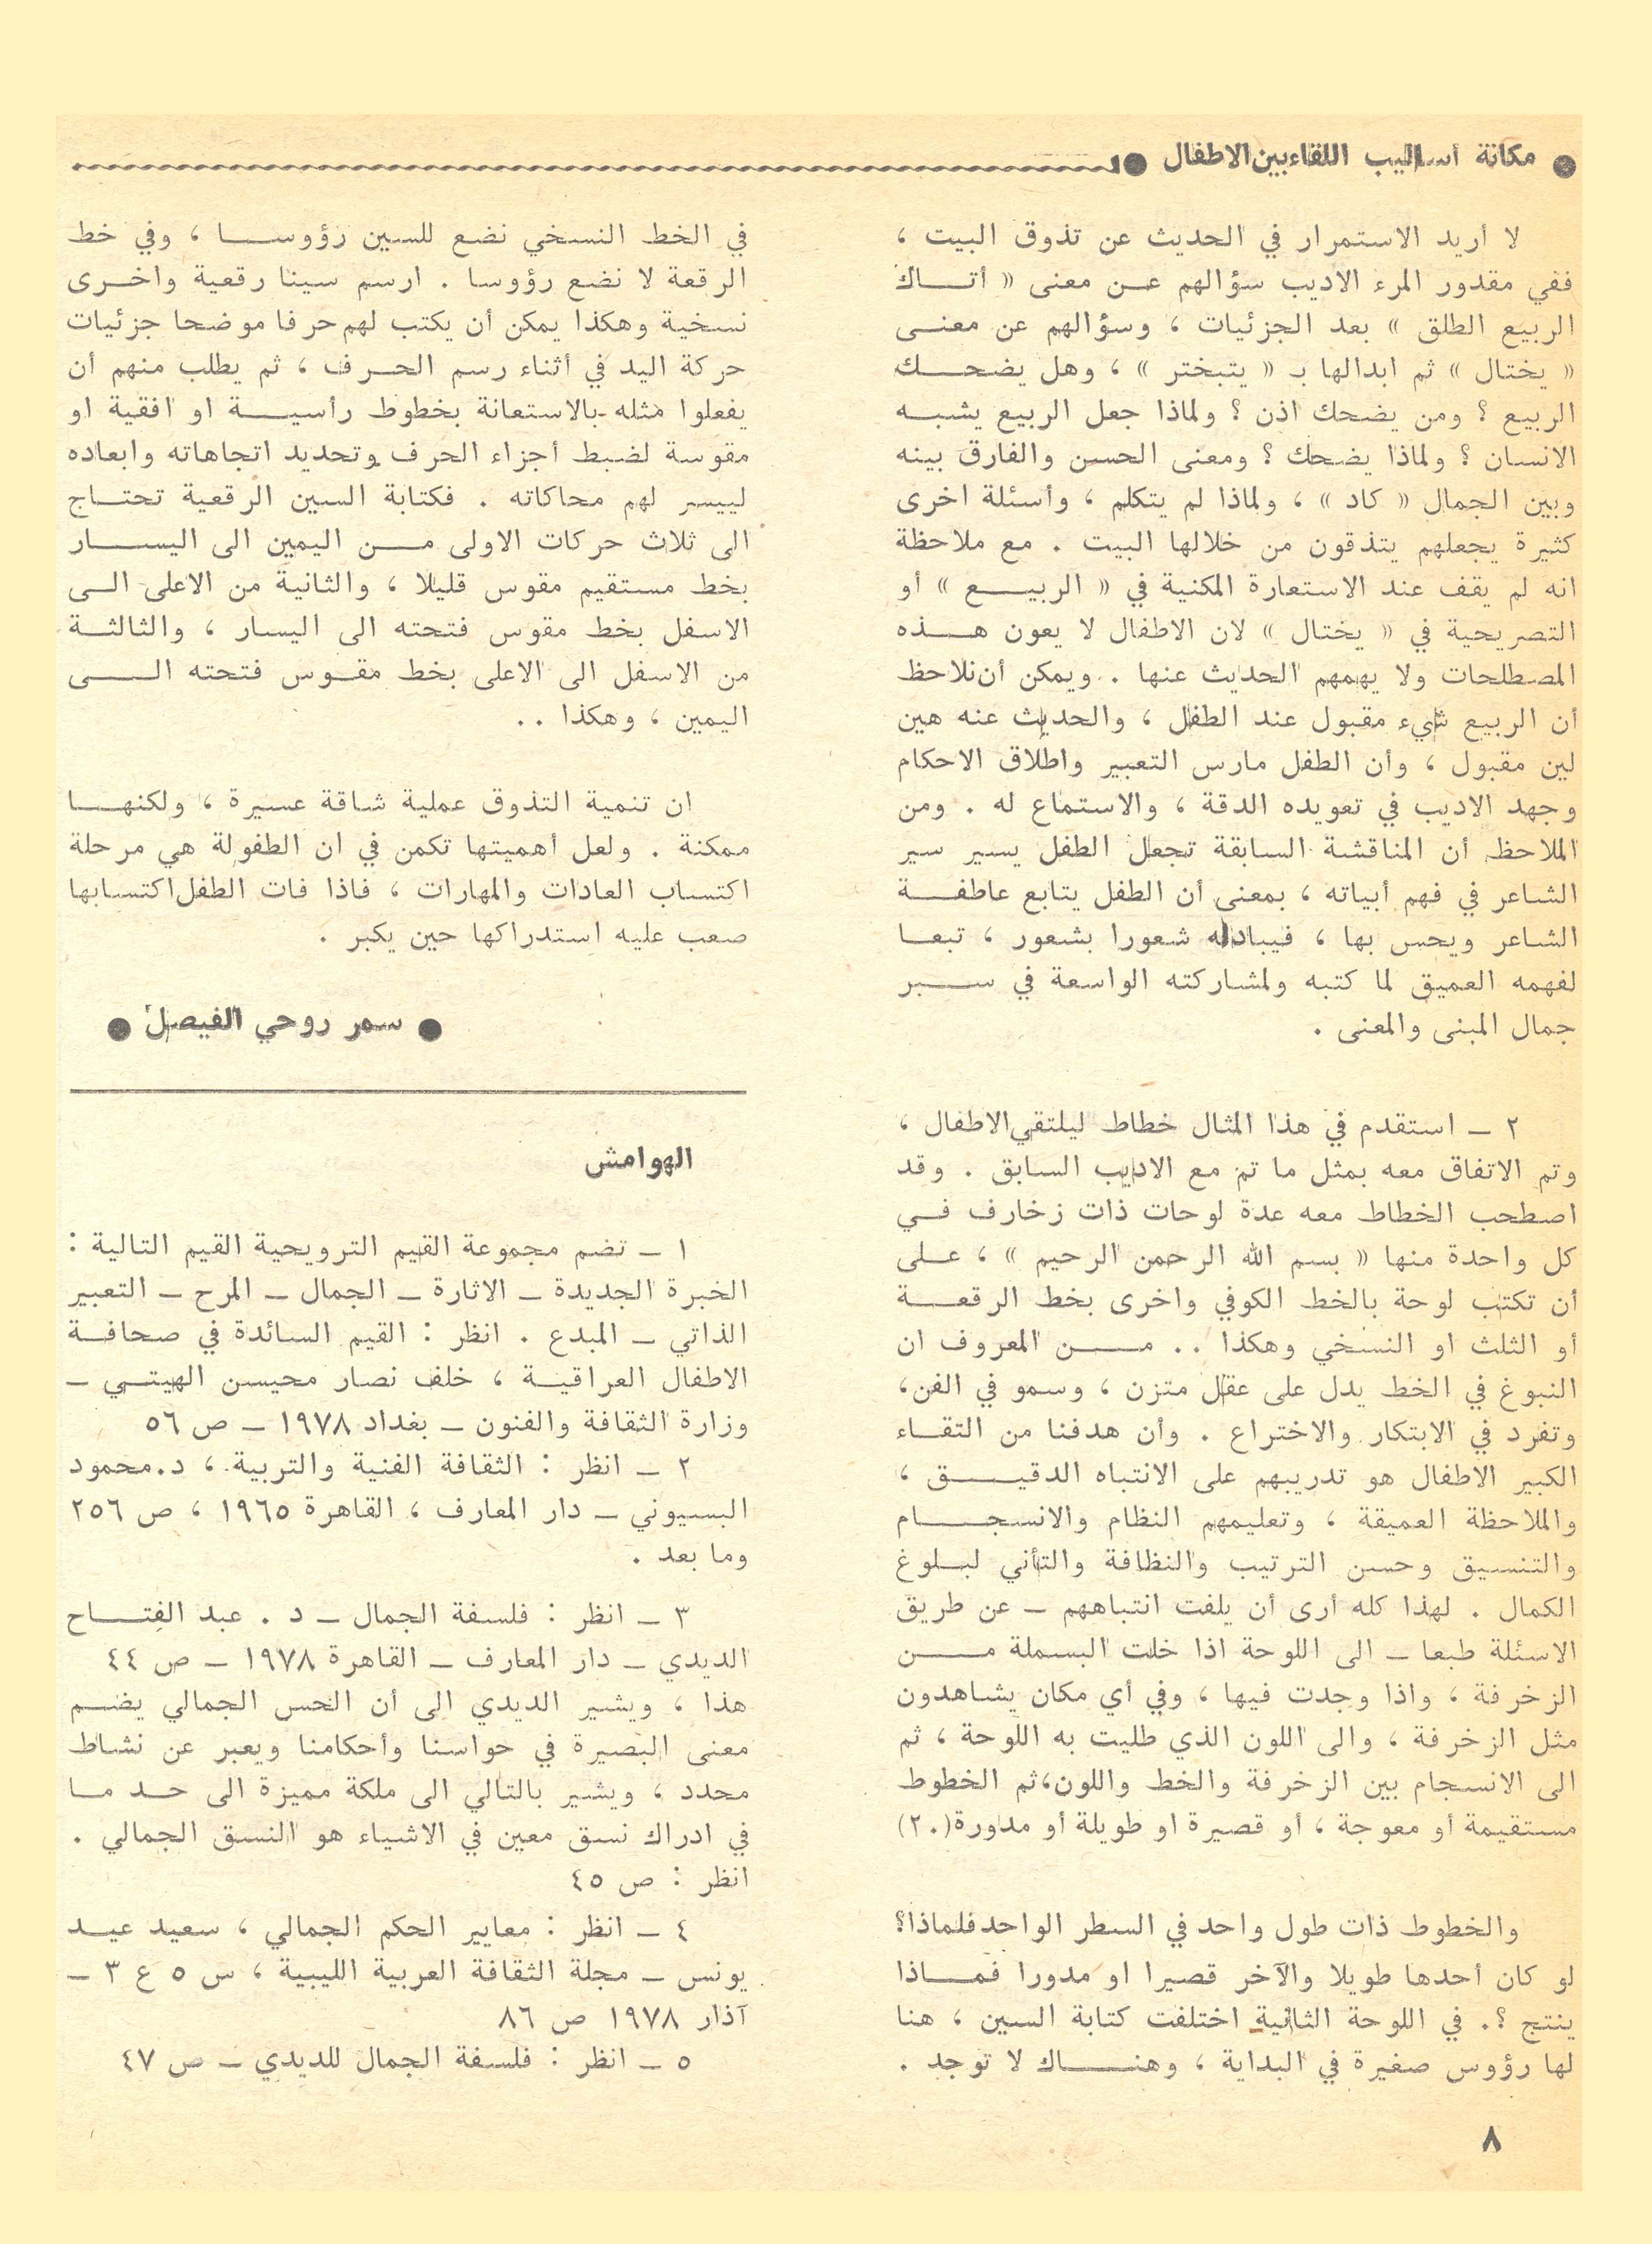 مكانة أساليب اللقاء بين الاطفال
لا أريد الاستمرار في الحديث عن تذوق البيت ،
ففي مقدور المرء الاديب سؤالهم عن معنى « أتاك
الربيع الطلق » بعد الجزئيات ، وسؤالهم عن معنى
« يختال » ثم ابدالها بـ « يتبختر » ، وهل يضحك
الربيع ؟ ومن يضحك اذن ؟ ولماذا جعل الربيع يشبه
الانسان ؟ ولماذا يضحك ؟ ومعنى الحسن والفارق بينه
وبين الجمال « كاد » ، ولماذا لم يتكلم ، وأسئلة اخرى
كثيرة يجعلهم يتذقون من خلالها البيت . مع ملاحظة
انه لم يقف عند الاستعارة المكنية في « الربيع » أو
التصريحية في « يختال » لان الاطفال لا يعون هذه
المصطلحات ولا يهمهم الحديث عنها . ويمكن أن نلاحظ
أن الربيع شيء مقبول عند الطفل ، والحديث عنه هين
لين مقبول ، وأن الطفل مارس التعبير واطلاق الاحكام
وجهد الاديب في تعويده الدقة ، والاستماع له . ومن
الملاحظ أن المناقشة السابقة تجعل الطفل يسير سير
الشاعر في فهم أبياته ، بمعنى أن الطفل يتابع عاطفة
الشاعر ويحس بها ، فيبادله شعورا بشعور ، تبعا
لفهمه العميق لما كتبه ولمشاركته الواسعة في سبر
جمال المبنى والمعنى .
٢ ـ استقدم في هذا المثال خطاط ليلتقي الاطفال ،
وتم الاتفاق معه بمثل ما تم مع الاديب السابق . وقد
اصطحب الخطاط معه عدة لوحات ذات زخارف في
كل واحدة منها « بسم الله الرحمن الرحيم » ، على
أن تكتب لوحة بالخط الكوفي واخرى بخط الرقعة
أو الثلث او النسخي وهكذا .. من المعروف ان
النبوغ في الخط يدل على عقل متزن ، وسمو في الفن،
وتفرد في الابتكار والاختراع . وأن هدفنا من التقاء
الكبير الاطفال هو تدريبهم على الانتباه الدقيق ،
والملاحظة العميقة ، وتعليمهم النظام والانسجام
والتنسيق وحسن الترتيب والنظافة والتأني لبلوغ
الكمال . لهذا كله أرى أن يلفت انتباههم ـ عن طريق
الاسئلة طبعا ـ الى اللوحة اذا خلت البسملة من
الزخرفة ، واذا وجدت فيها ، وفي أي مكان يشاهدون
مثل الزخرفة ، والى اللون الذي طليت به اللوحة ، ثم
الى الانسجام بين الزخرفة والخط واللون، ثم الخطوط
مستقيمة أو معوجة ، أو قصيرة او طويلة أو مدورة(٢٠)
والخطوط ذات طول واحد في السطر الواحد فلماذا؟
لو كان أحدها طويلا والآخر قصيرا او مدورا فماذا
ينتج ؟. في اللوحة الثانية اختلفت كتابة السين ، هنا
لها رؤوس صغيرة في البداية ، وهناك لا توجد .
في الخط النسخي نضع للسين رؤوسا ، وفي خط
الرقعة لا نضع رؤوسا . ارسم سينا رقعية واخرى
نسخية وهكذا يمكن أن يكتب لهم حرفا موضحا جزئيات
حركة اليد في أثناء رسم الحرف ، ثم يطلب منهم أن
يفعلوا مثله بالاستعانة بخطوط رأسية او افقية او
مقوسة لضبط أجزاء الحرف وتحديد اتجاهاته وابعاده
لييسر لهم محاكاته . فكتابة السين الرقعية تحتاج
الى ثلاث حركات الاولى من اليمين الى اليسار
بخط مستقيم مقوس قليلا ، والثانية من الاعلى الى
الاسفل بخط مقوس فتحته الى اليسار ، والثالثة
من الاسفل الى الاعلى بخط مقوس فتحته الى
اليمين ، وهكذا ..
ان تنمية التذوق عملية شاقة عسيرة ، ولكنها
ممكنة . ولعل أهميتها تكمن في ان الطفولة هي مرحلة
اكتساب العادات والمهارات ، فاذا فات الطفل اكتسابها
صعب عليه استدراكها حين يكبر .
● سمر روحي الفيصل ●
الهوامش
١ ـ تضم مجموعة القيم الترويحية القيم التالية :
الخبرة الجديدة ـ الاثارة ـ الجمال ـ المرح ـ التعبير
الذاتي ـ المبدع . انظر : القيم السائدة في صحافة
الاطفال العراقية ، خلف نصار محيسن الهيتي ـ
وزارة الثقافة والفنون ـ بغداد ١٩٧٨ ـ ص ٥٦
٢ ـ انظر : الثقافة الفنية والتربية ، د.محمود
البسيوني ـ دار المعارف ، القاهرة ١٩٦٥ ، ص ٢٥٦
وما بعد .
٣ ـ انظر : فلسفة الجمال ـ د . عبد الفتاح
الديدي ـ دار المعارف ـ القاهرة ١٩٧٨ ـ ص ٤٤
هذا ، ويشير الديدي الى أن الحس الجمالي يضم
معنى البصيرة في حواسنا وأحكامنا ويعبر عن نشاط
محدد ، ويشير بالتالي الى ملكة مميزة الى حد ما
في ادراك نسق معين في الاشياء هو النسق الجمالي .
انظر : ص ٤٥
٤ ـ انظر : معايير الحكم الجمالي ، سعيد عيد
يونس ـ مجلة الثقافة العربية الليبية ، س ٥ ع ٣ ـ
آذار ١٩٧٨ ص ٨٦
٥ ـ انظر : فلسفة الجمال للديدي ـ ص ٤٧
٨